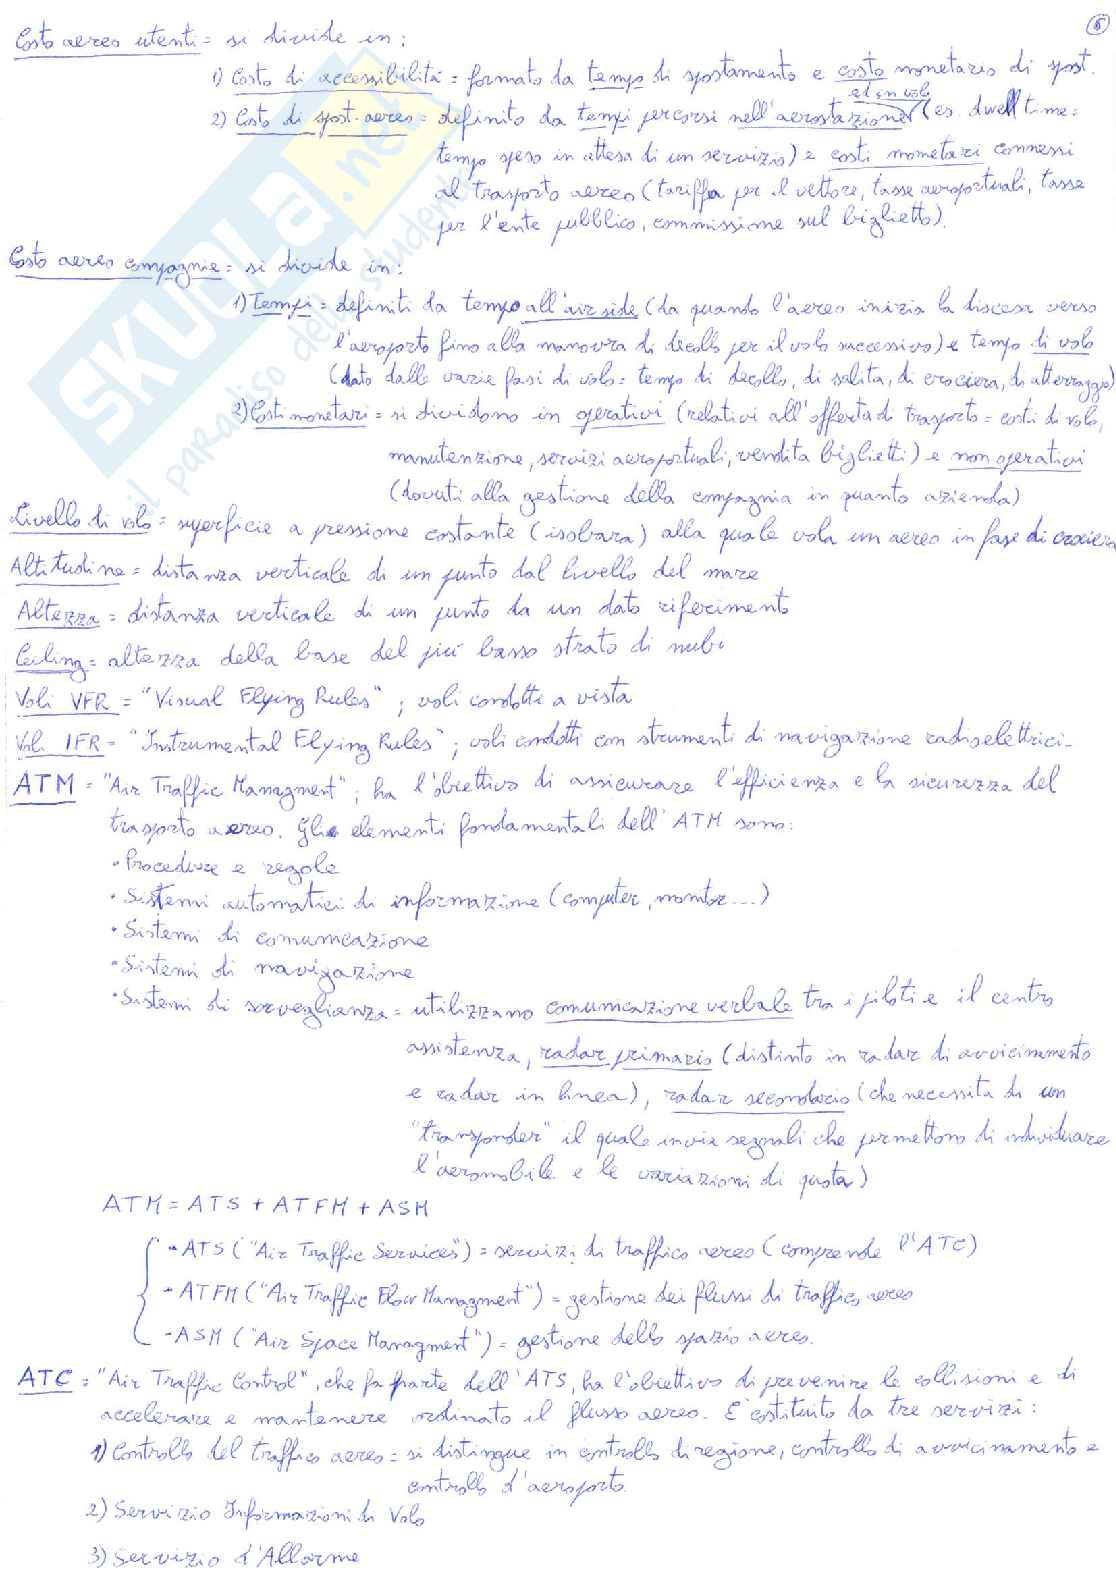 6
Costo aereo utenti = si divide in:
1) Costo di accessibilità = formato da tempo di spostamento e costo monetario di spost.
ed in volo
2) Costo di spost. aereo = definito da tempi percorsi nell'aerostazione (es. dwell time =
tempo speso in attesa di un servizio) e costi monetari connessi
al trasporto aereo (tariffa per il vettore, tasse aeroportuali, tasse
per l'ente pubblico, commissione sul biglietto).
Costo aereo compagnie = si divide in:
1) Tempi = definiti da tempo all'air side (da quando l'aereo inizia la discesa verso
l'aeroporto fino alla manovra di decollo per il volo successivo) e tempo di volo
(dato dalle varie fasi di volo = tempo di decollo, di salita, di crociera, di atterraggio)
2) Costi monetari = si dividono in operativi (relativi all'offerta di trasporto = costi di volo,
manutenzione, servizi aeroportuali, vendita biglietti) e non operativi
(dovuti alla gestione della compagnia in quanto azienda)
Livello di volo = superficie a pressione costante (isobara) alla quale vola un aereo in fase di crociera
Altitudine = distanza verticale di un punto dal livello del mare
Altezza = distanza verticale di un punto da un dato riferimento
Ceiling = altezza della base del più basso strato di nubi
Voli VFR = "Visual Flying Rules"; voli condotti a vista
Voli IFR = "Instrumental Flying Rules"; voli condotti con strumenti di navigazione radioelettrici.
ATM = "Air Traffic Managment"; ha l'obiettivo di assicurare l'efficienza e la sicurezza del
trasporto aereo. Gli elementi fondamentali dell'ATM sono:
• Procedure e regole
• Sistemi automatici di informazione (computer, monitor...)
• Sistemi di comunicazione
• Sistemi di navigazione
• Sistemi di sorveglianza = utilizzano comunicazione verbale tra i piloti e il centro
assistenza, radar primario (distinto in radar di avvicinamento
e radar in linea), radar secondario (che necessita di un
"transponder" il quale invia segnali che permettono di individuare
l'aeromobile e le variazioni di quota)
ATM = ATS + ATFM + ASM
- ATS ("Air Traffic Services") = servizi di traffico aereo (comprende l'ATC)
- ATFM ("Air Traffic Flow Managment") = gestione dei flussi di traffico aereo
- ASM ("Air Space Managment") = gestione dello spazio aereo.
ATC = "Air Traffic Control", che fa parte dell'ATS, ha l'obiettivo di prevenire le collisioni e di
accelerare e mantenere ordinato il flusso aereo. E' costituito da tre servizi:
1) Controllo del traffico aereo = si distingue in controllo di regione, controllo di avvicinamento e
controllo d'aeroporto.
2) Servizio Informazioni di Volo
3) Servizio d'Allarme
SKUOLA.net
il paradiso dello studente